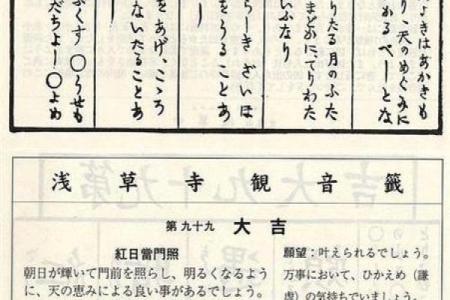 きはあかきも
り、天のめぐみに
かるべしとな
りたる月のふた
まどかにてりわた
いふなり
らしき さいほ
をうることあ
をあげ、こゝろ
ないたることあ
ぶくす ○うせも
だちよし ○よめ
浅草寺観音籤
第九十九 大吉
紅日當門照
朝日が輝いて門前を照らし、明るくなるよう
に、天の恵みによる良い事があるでしょう。
願望：叶えられるでしょう。
万事において、ひかえめ（謙
虚）の気持ちでいましょう。